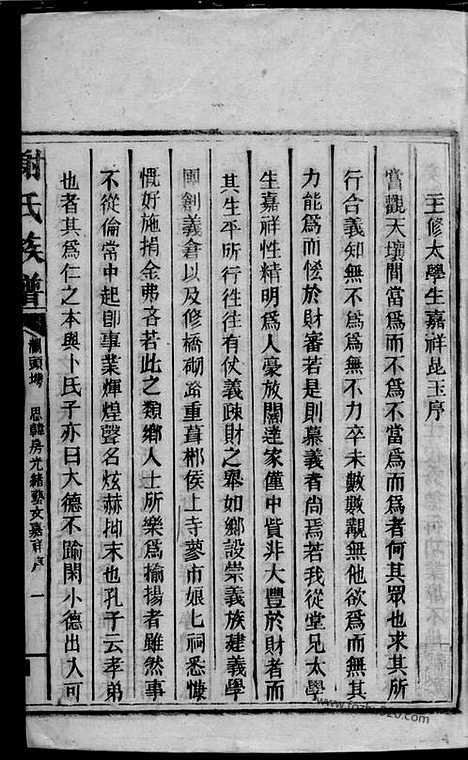 主修太學生嘉祥昆玉序
嘗觀天壤間當為而不為不當為而為者何其眾也求其所
行合義知無不為為無不力卒未數數覯無他欲為而無其
力能為而慳於財審若是則慕義者尚焉若我從堂兄太學
生嘉祥性精明為人豪放闊達家僅中貲非大豐於財者而
其生平所行徃徃有仗義疎財之舉如鄉設崇義族建義學
團創義倉以及修橋砌路重葺郴侯上寺蓼市娘上祠悉慷
慨好施捐金弗吝若此之類鄉人士所樂為揄揚者雖然事
不從倫常中起卽事業輝煌聲名炫赫抑末也孔子云孝弟
也者其為仁之本與卜氏子亦曰大德不踰閑小德出入可
謝氏族譜
思韓房光緒藝文嘉祥序
一
www.fozhu920.com